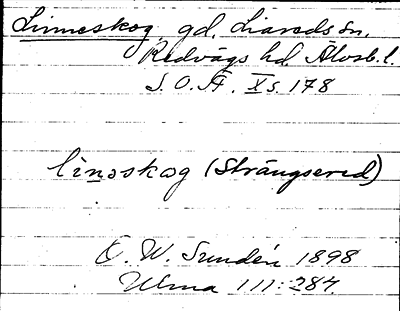 Linneskog, gd, Liareds sn,
Redvägs hd Älvsb. l.
S. O. Ä. X s. 178
linoskog (Strängsered)
O. W. Sundén 1898
Ulma 111:284